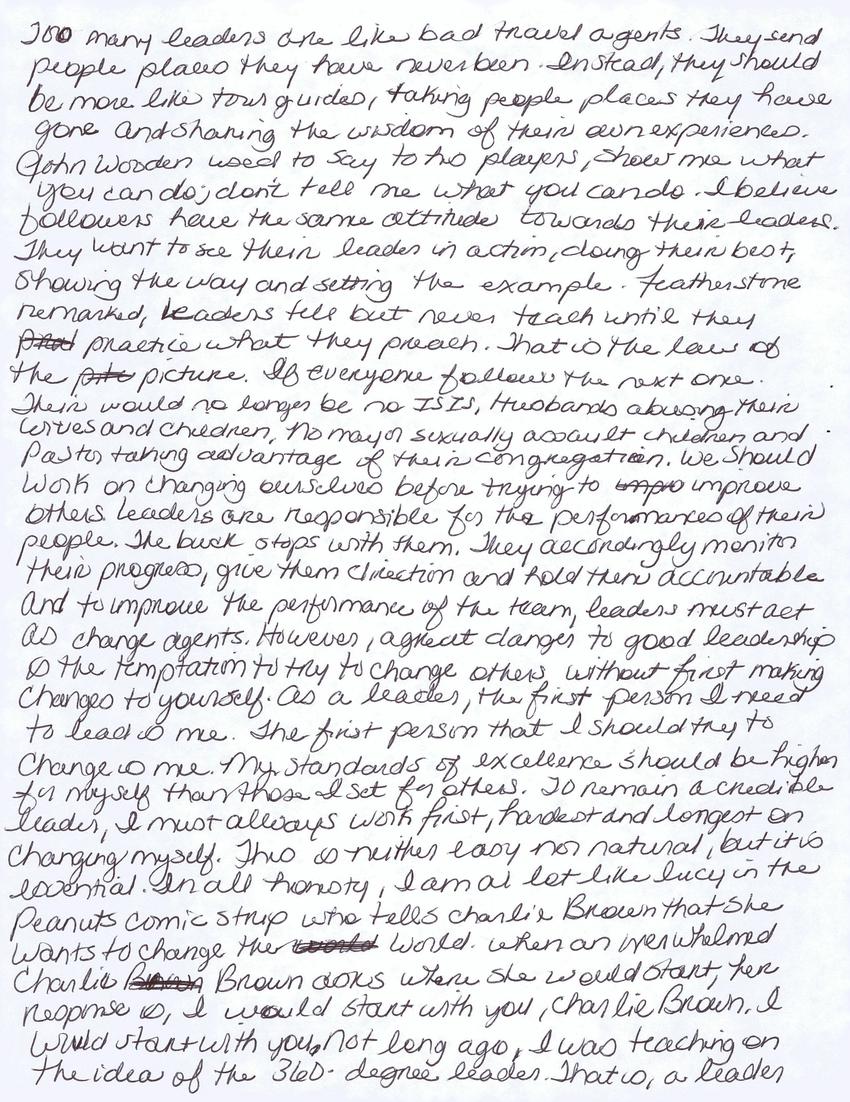 Too many leaders are like bad travel agents. They send
people places they have never been. Instead, they should
be more like tour guides, taking people places they have
gone and sharing the wisdom of their own experiences.
John Wooden used to say to his players, show me what
you can do; don't tell me what you can do. I believe
followers have the same attitude towards their leaders.
They want to see their leader in action, doing their best,
showing the way and setting the example. Featherstone
remarked, leaders tell but never teach until they
practice what they preach. That is the law of
the picture. If everyone follow the next one.
Their would no longer be no ISIS, Husbands abusing their
wives and children, No mayor sexually assault children and
Pastor taking advantage of their congregation. We should
work on changing ourselves before trying to improve
others. Leaders are responsible for the performances of their
people. The buck stops with them. They accordingly monitor
their progress, give them direction and hold them accountable
and to improve the performance of the team, leaders must act
as change agents. However, a great danger to good leadership
is the temptation to try to change others without first making
changes to yourself. As a leader, the first person I need
to lead is me. The first person that I should try to
change is me. My standards of excellence should be higher
for myself than those I set for others. To remain a credible
leader, I must always work first, hardest and longest on
changing myself. This is neither easy nor natural, but it is
essential. In all honesty, I am a lot like lucy in the
Peanuts comic strip who tells charlie Brown that she
wants to change the world. when an overwhelmed
Charlie Brown asks where she would start, her
response is, I would start with you, Charlie Brown. I
would start with you, Not long ago, I was teaching on
the idea of the 360-degree leader. That is, a leader